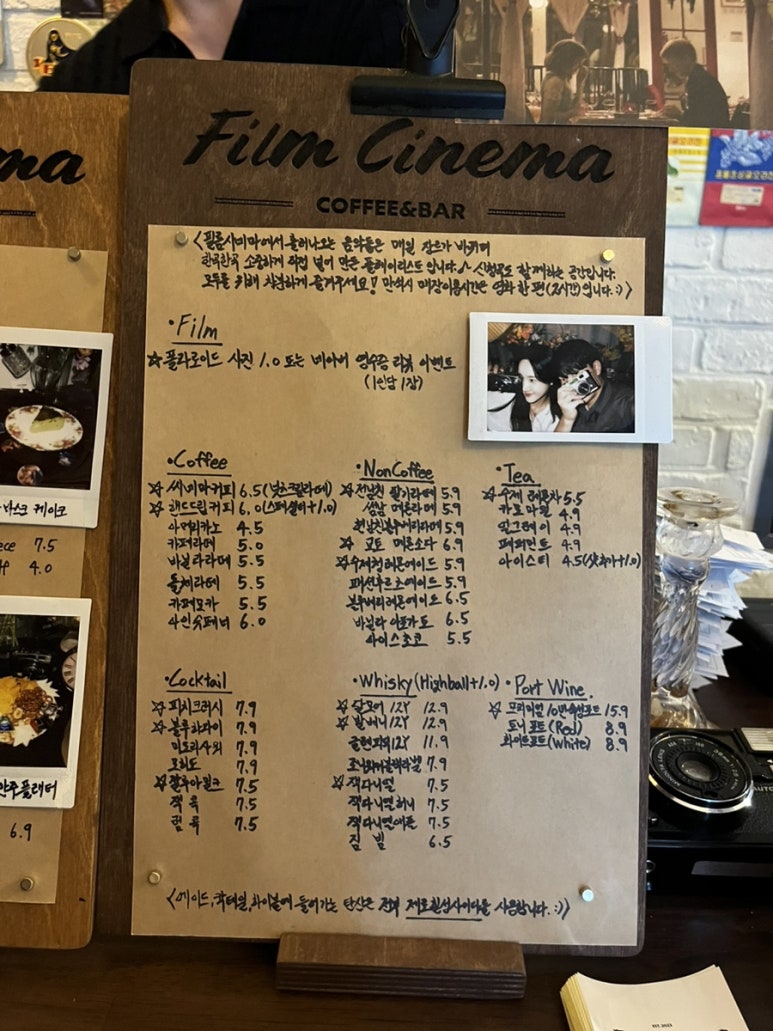 Film Cinema
COFFEE&BAR
<필름시네마에서 흘러나오는 음악들은 매일 장르가 바뀌며
한곡한곡 소중하게 직접 넣어 만든 플레이리스트입니다♪ 신청곡도 함께하는 공간입니다.
모두를 위해 차분하게 즐겨주세요! 만석시 매장이용시간은 영화 한 편(2시간)입니다. :)>
•Film
☆폴라로이드 사진 1.0 또는 네이버 영수증 리뷰 이벤트
(1인당 1장)
•Coffee
☆씨네마커피 6.5(넛츠크림라떼)
☆핸드드립커피 6.0(스페셜티+1.0)
아메리카노 4.5
카페라떼 5.0
바닐라라떼 5.5
돌체라떼 5.5
카페모카 5.5
아인슈페너 6.0
•NonCoffee
☆전남친 딸기라떼 5.9
성남 메론라떼 5.9
현남친블루베리라떼 5.9
☆교토 메론소다 6.9
☆수제청레몬에이드 5.9
패션후르츠에이드 5.9
블루베리레몬에이드 6.5
바닐라 아포가토 6.5
아이스초코 5.5
•Tea
☆수제 레몬차 5.5
카모마일 4.9
얼그레이 4.9
페퍼민트 4.9
아이스티 4.5(샷추가+1.0)
•Cocktail
☆피치크러시 7.9
☆블루하와이 7.9
미도리사워 7.9
모히또 7.9
☆깔루아밀크 7.5
잭 콕 7.5
럼 콕 7.5
•Whisky(Highball+1.0)
☆달모어 12Y 12.9
☆발베니 12Y 12.9
글렌피딕12Y 11.9
조니워커블랙라벨 7.9
☆잭다니엘 7.5
잭다니엘허니 7.5
잭다니엘애플 7.5
짐 빔 6.5
•Port Wine
☆프리미엄 10년숙성포트 15.9
토니포트(Red) 8.9
화이트포트(White) 8.9
<에이드,칵테일,하이볼에 들어가는 탄산은 전부 제로칠성사이다를 사용합니다. :)>
ma
바스크 케이크
7.5
4.0
안주플래터
6.9
EST. 2023